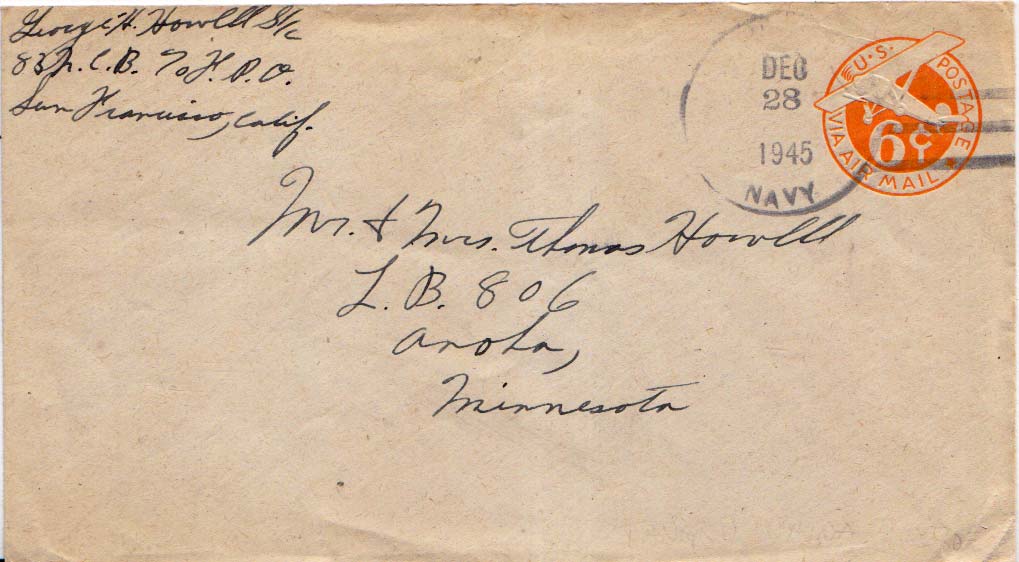 George H. Howell S/c
83 N.C.B. c/o F.P.O.
San Francisco, Calif.
DEC
28
1945
NAVY
U.S. POSTAGE
6¢
VIA AIR MAIL
Mr. & Mrs. Thomas Howell
L.B. 806
Anoka,
Minnesota